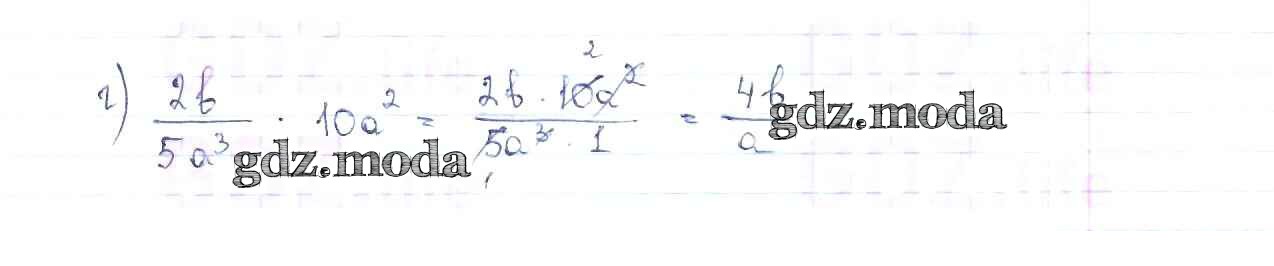 г) 2b/5a³ · 10a² = 2b · 10a²/5a³ · 1 = 4b/a
2
gdz.moda
gdz.moda